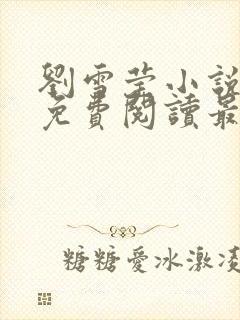 劉雪莹小說
免費閱讀最
糖糖愛冰激凌